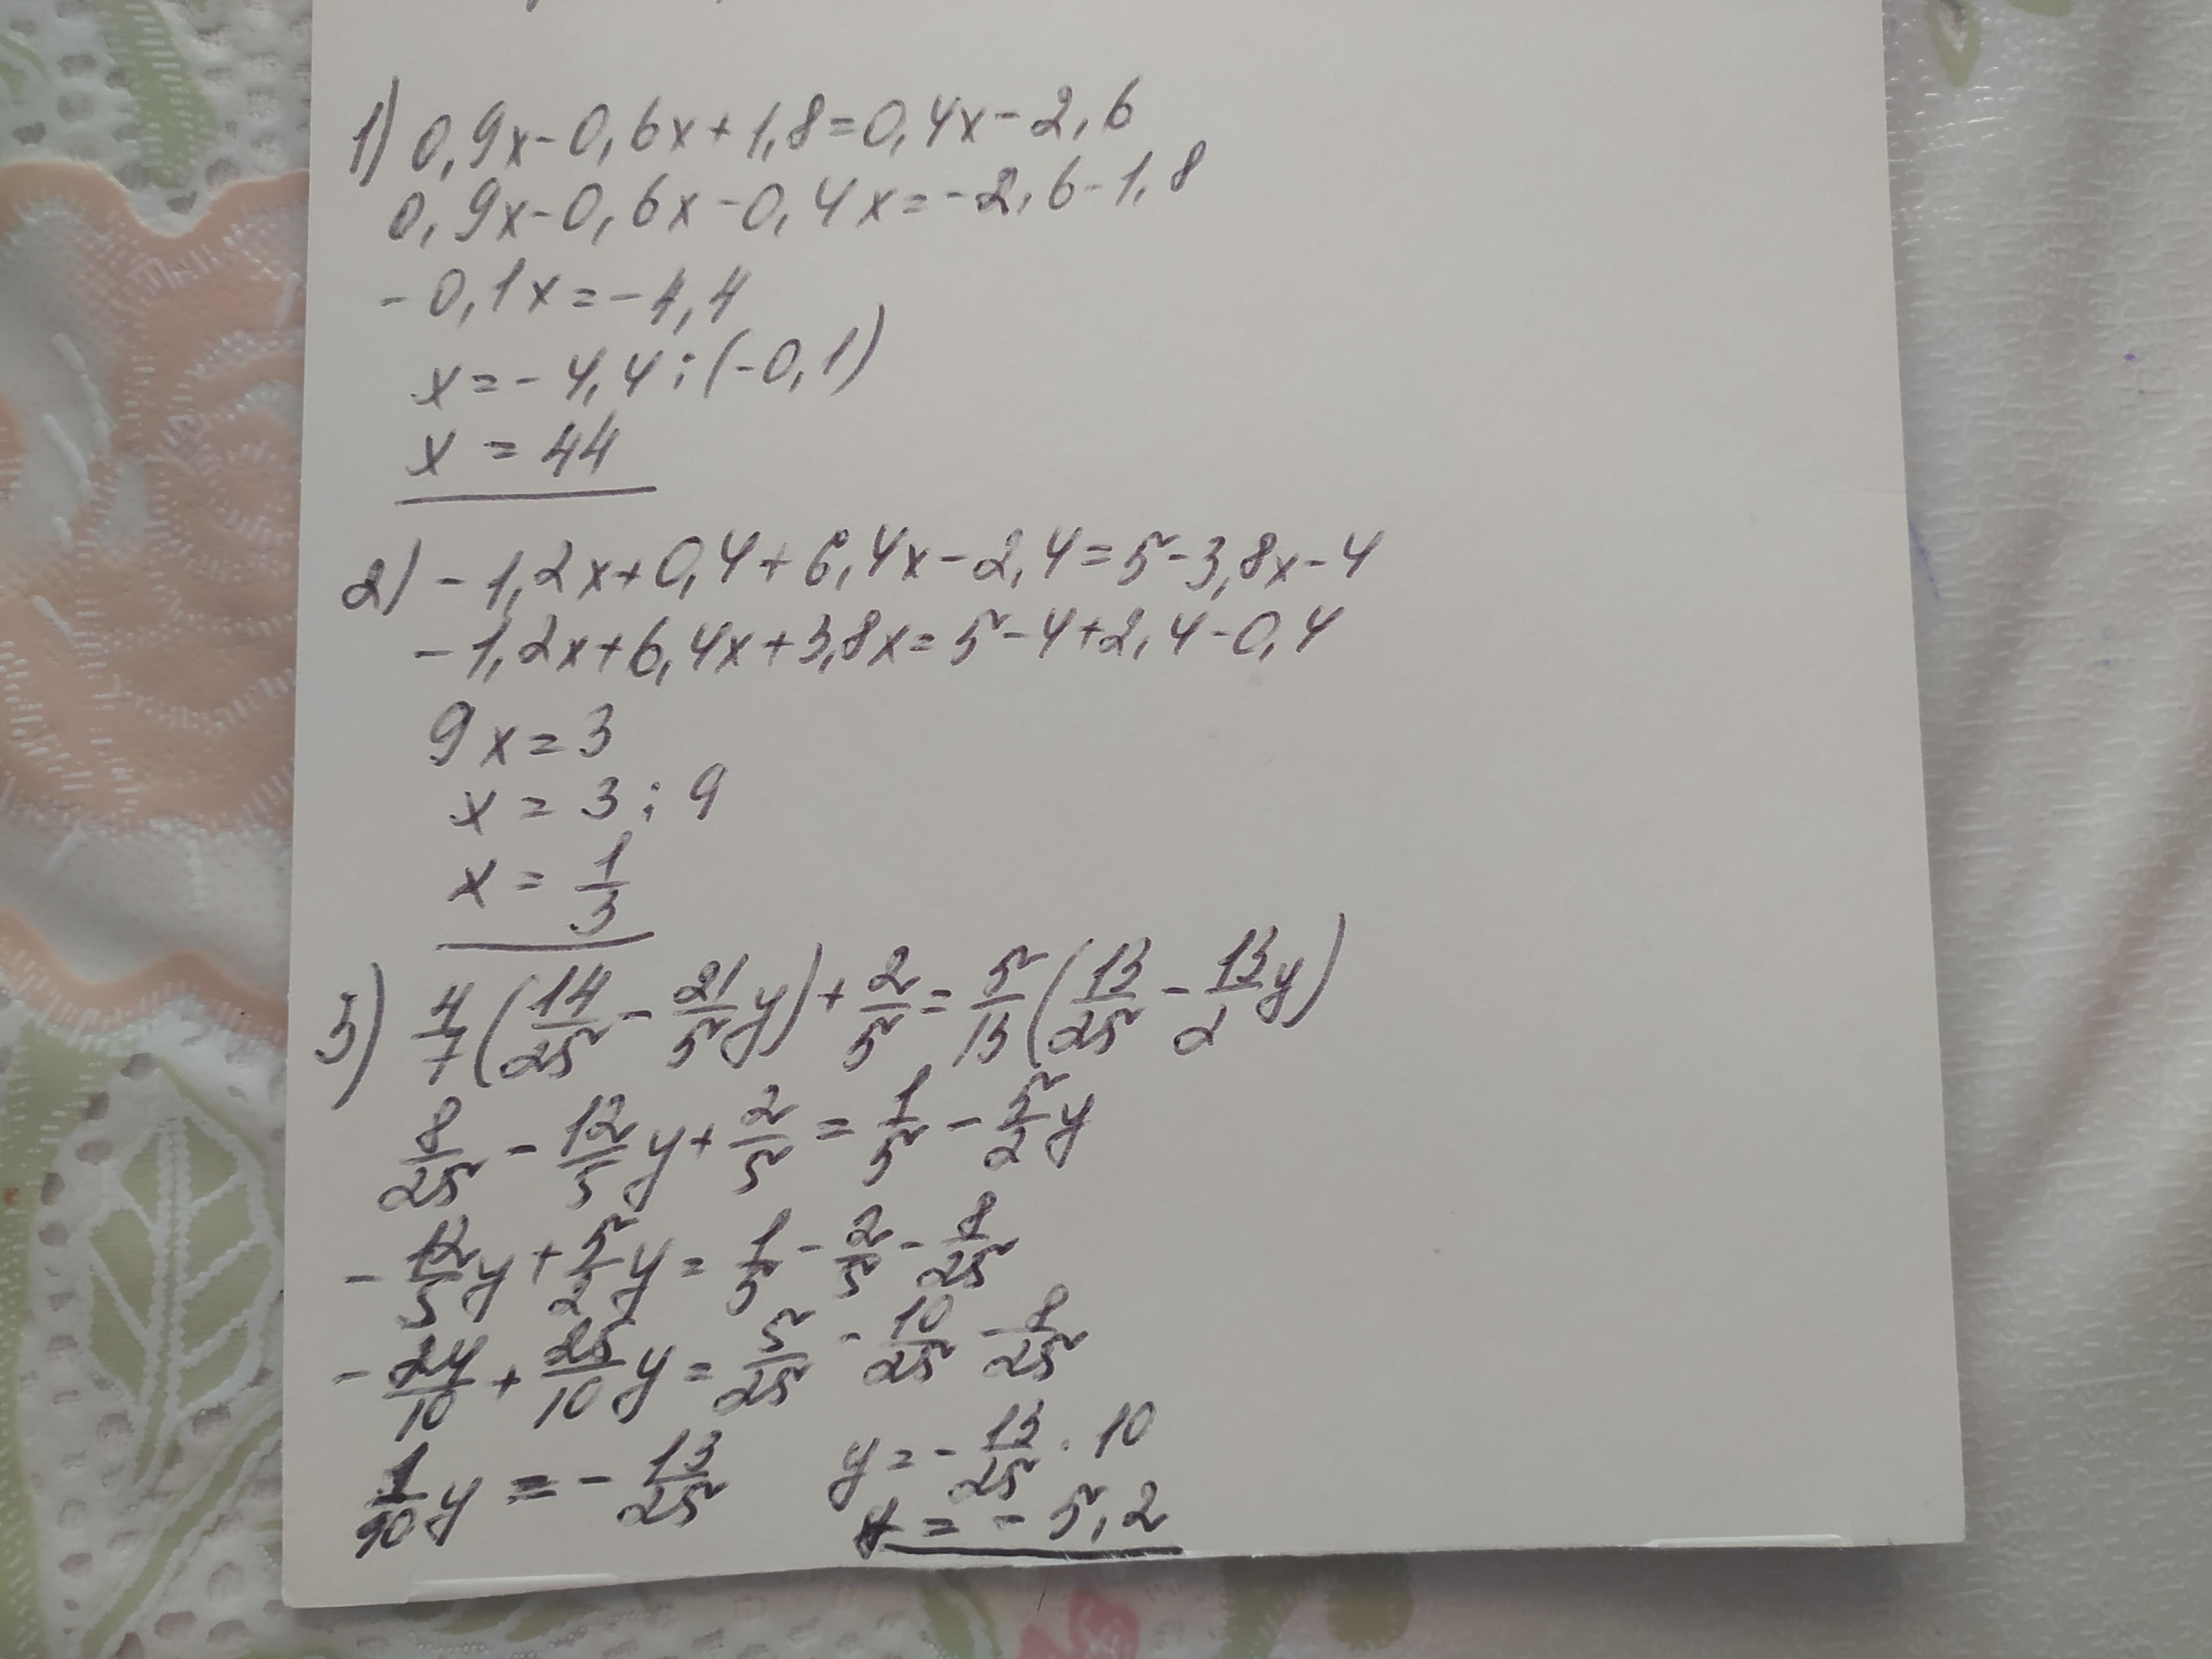 1) 0,9x-0,6x+1,8=0,4x-2,6
0,9x-0,6x-0,4x=-2,6-1,8
-0,1x=-4,4
x=-4,4:(-0,1)
x=44
2) -1,2x+0,4+6,4x-2,4=5-3,8x-4
-1,2x+6,4x+3,8x=5-4+2,4-0,4
9x=3
x=3:9
x=1/3
3) 4/7(14/25-21/5y)+2/5=5/13(13/25-13/2y)
8/25-12/5y+2/5=1/5-5/2y
-12/5y+5/2y=1/5-2/5-8/25
-24/10+25/10y=5/25-10/25-8/25
1/10y=-13/25 y=-13/25·10
y=-5,2